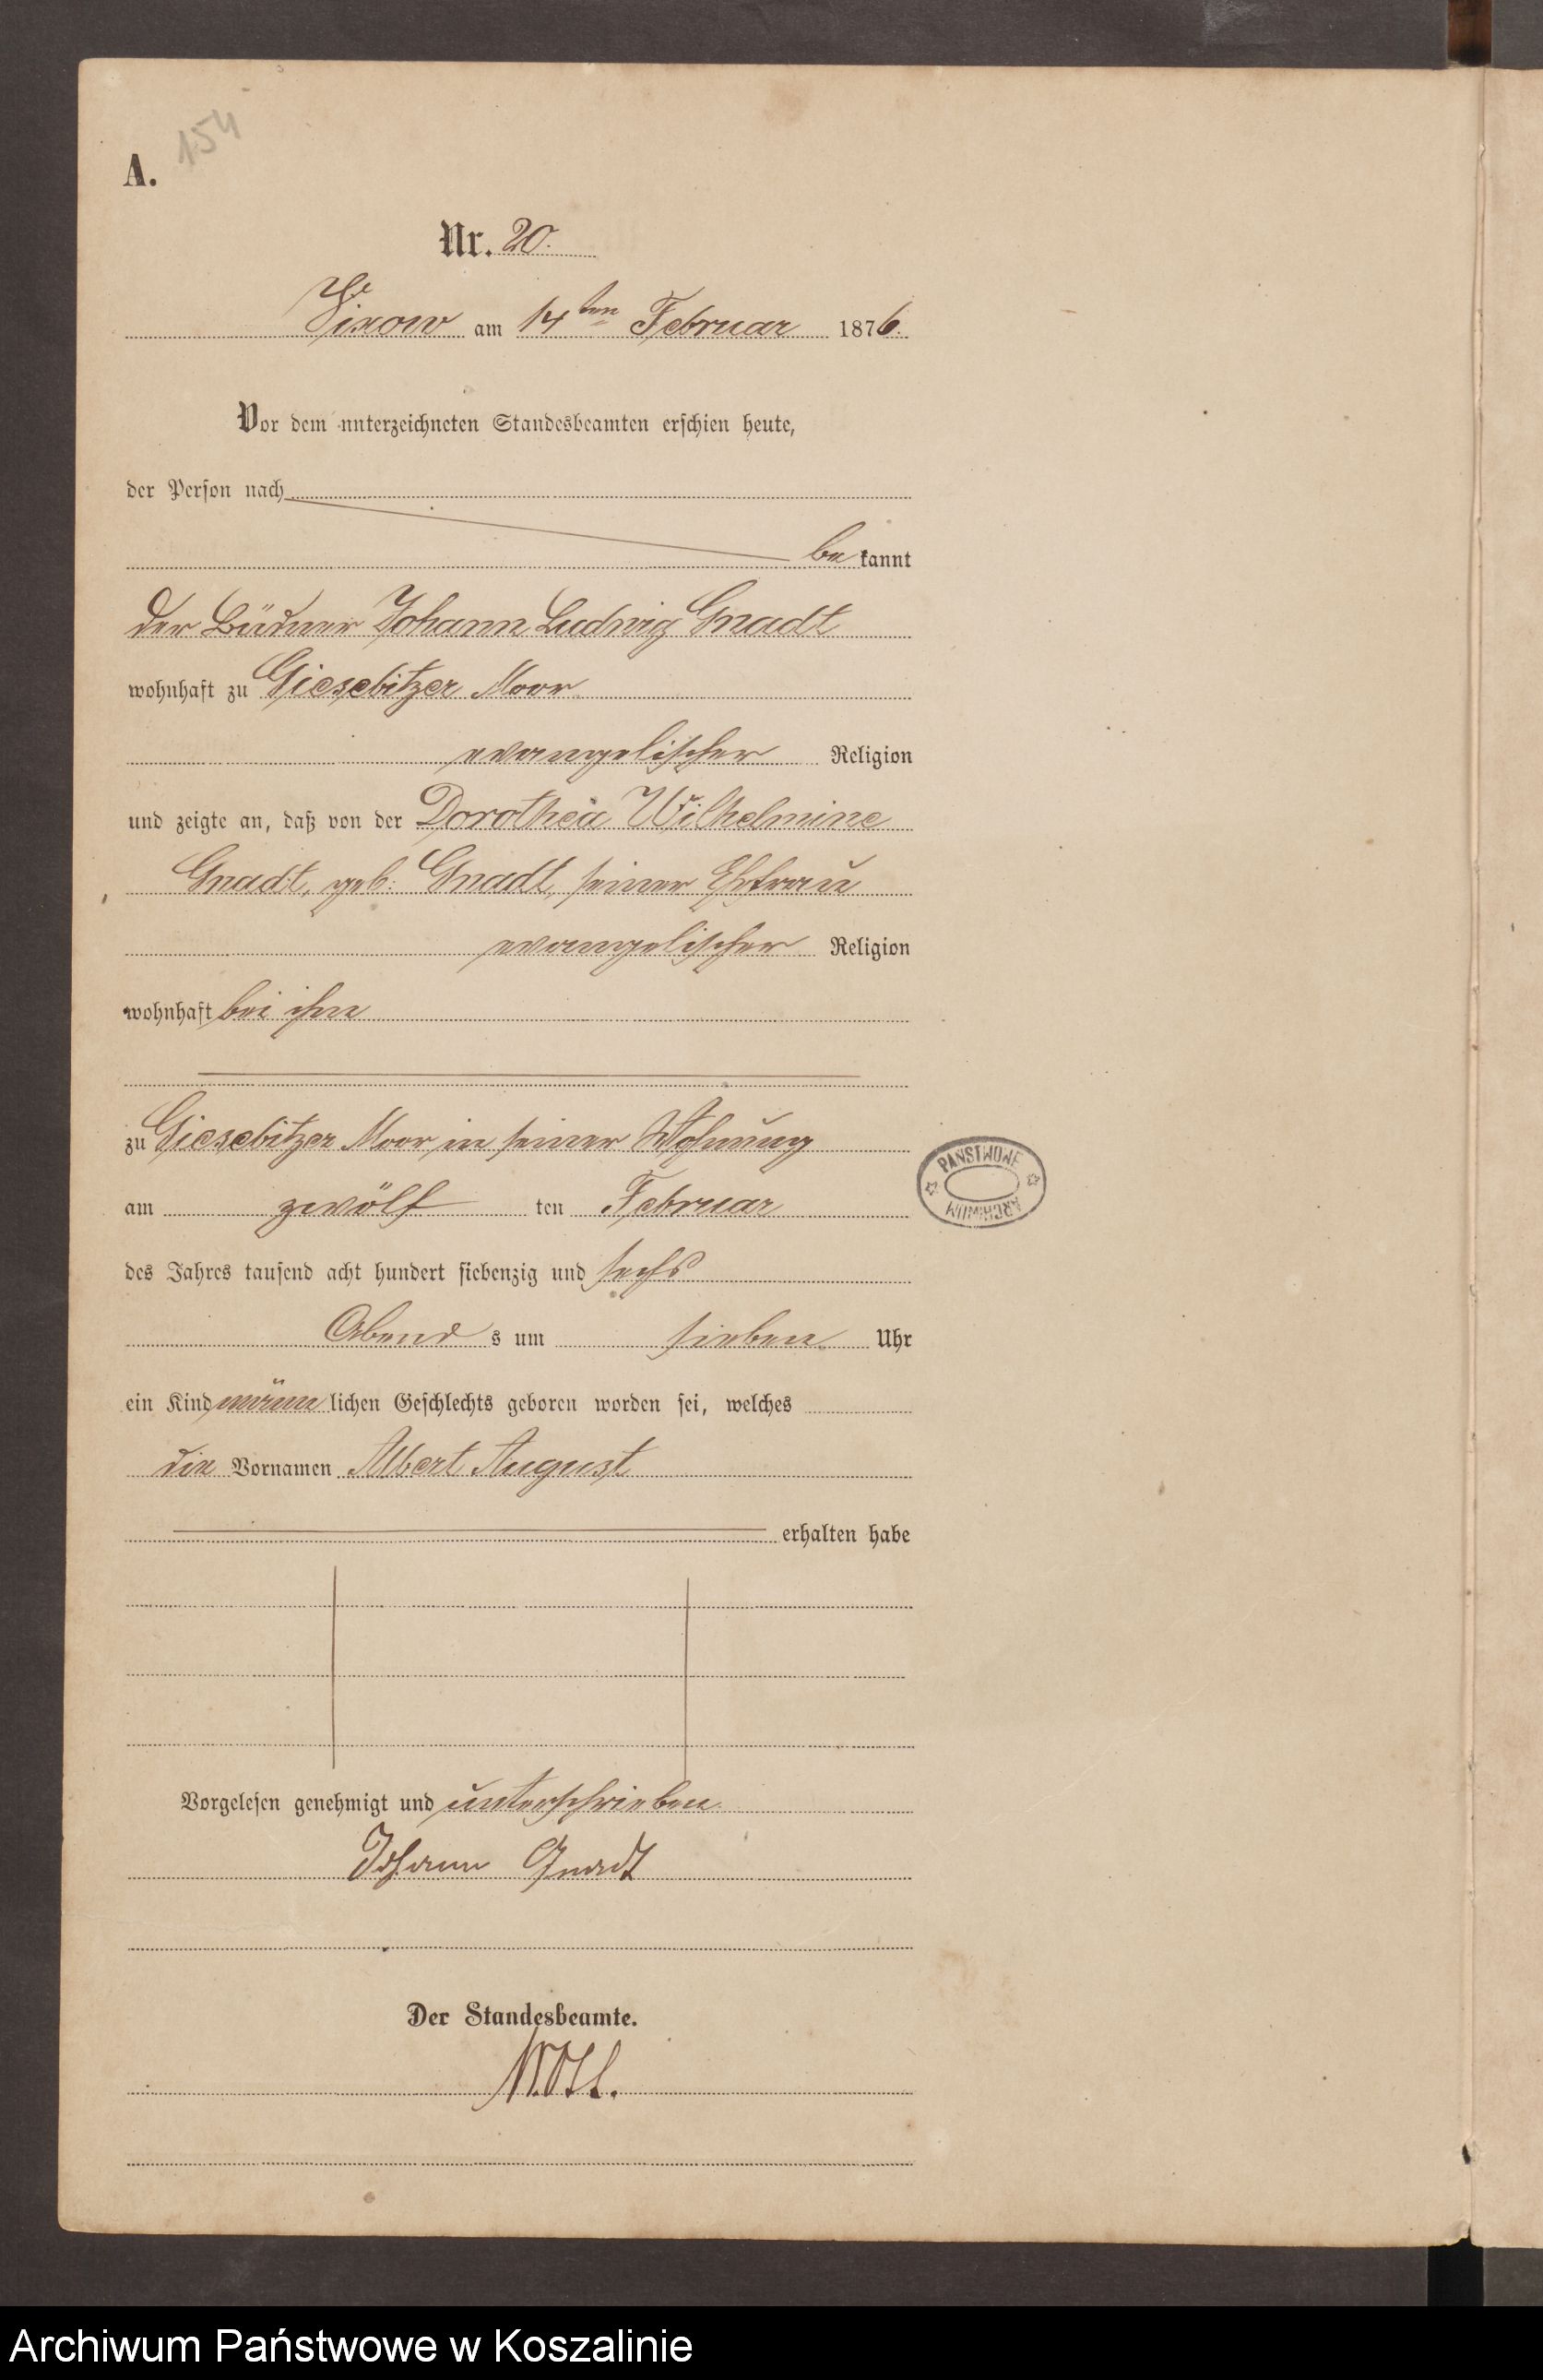 154
A.
Nr. 20.
Vixow am 14ten Februar 1876.
Vor dem unterzeichneten Standesbeamten erschien heute,
der Person nach
bekannt
der Büdner Johann Ludwig Gnadt
wohnhaft zu Giesebitzer Moor
evangelischer Religion
und zeigte an, daß von der Dorothea Wilhelmine
Gnadt, geb. Gnadt, seiner Ehefrau
evangelischer Religion
wohnhaft bei ihm
zu Giesebitzer Moor in seiner Wohnung
am zwölf ten Februar
des Jahres tausend acht hundert siebenzig und sechs
Abend s um sieben Uhr
ein Kind männlichen Geschlechts geboren worden sei, welches
die Vornamen Albert August
erhalten habe
Vorgelesen genehmigt und unterschrieben
Johann Gnadt
Der Standesbeamte.
PAŃSTWOWE ARCHIWUM
Archiwum Państwowe w Koszalinie